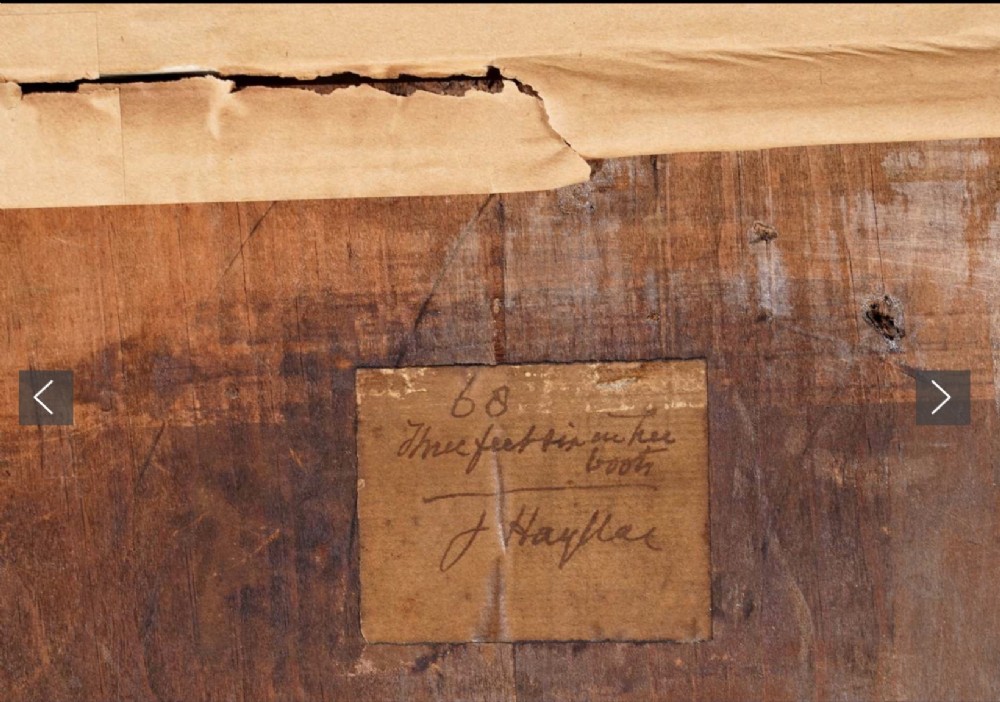 68
Three feet six in her
boots
J Hayllar